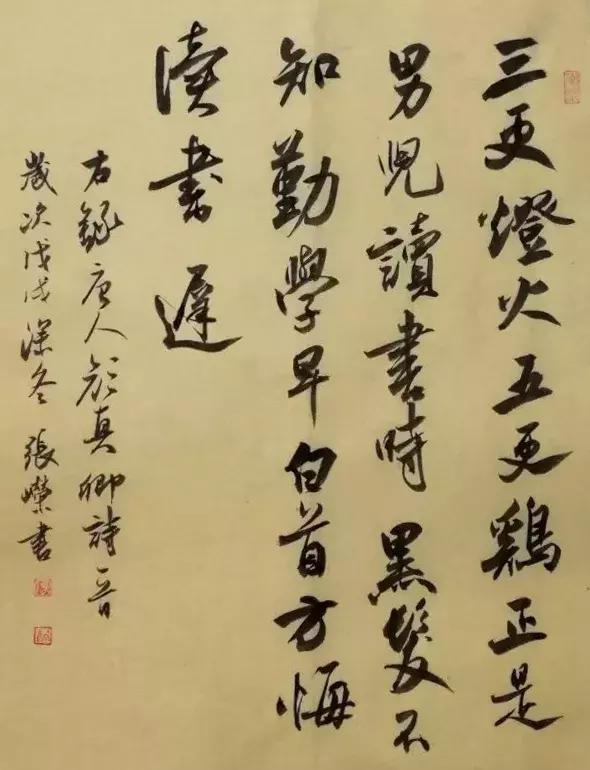 三更燈火五更鷄正是
男児讀書時黑髮不
知勤學早白首方悔
讀書遲
右録唐人顔真卿詩一首
歲次戊戌深冬張嶸書